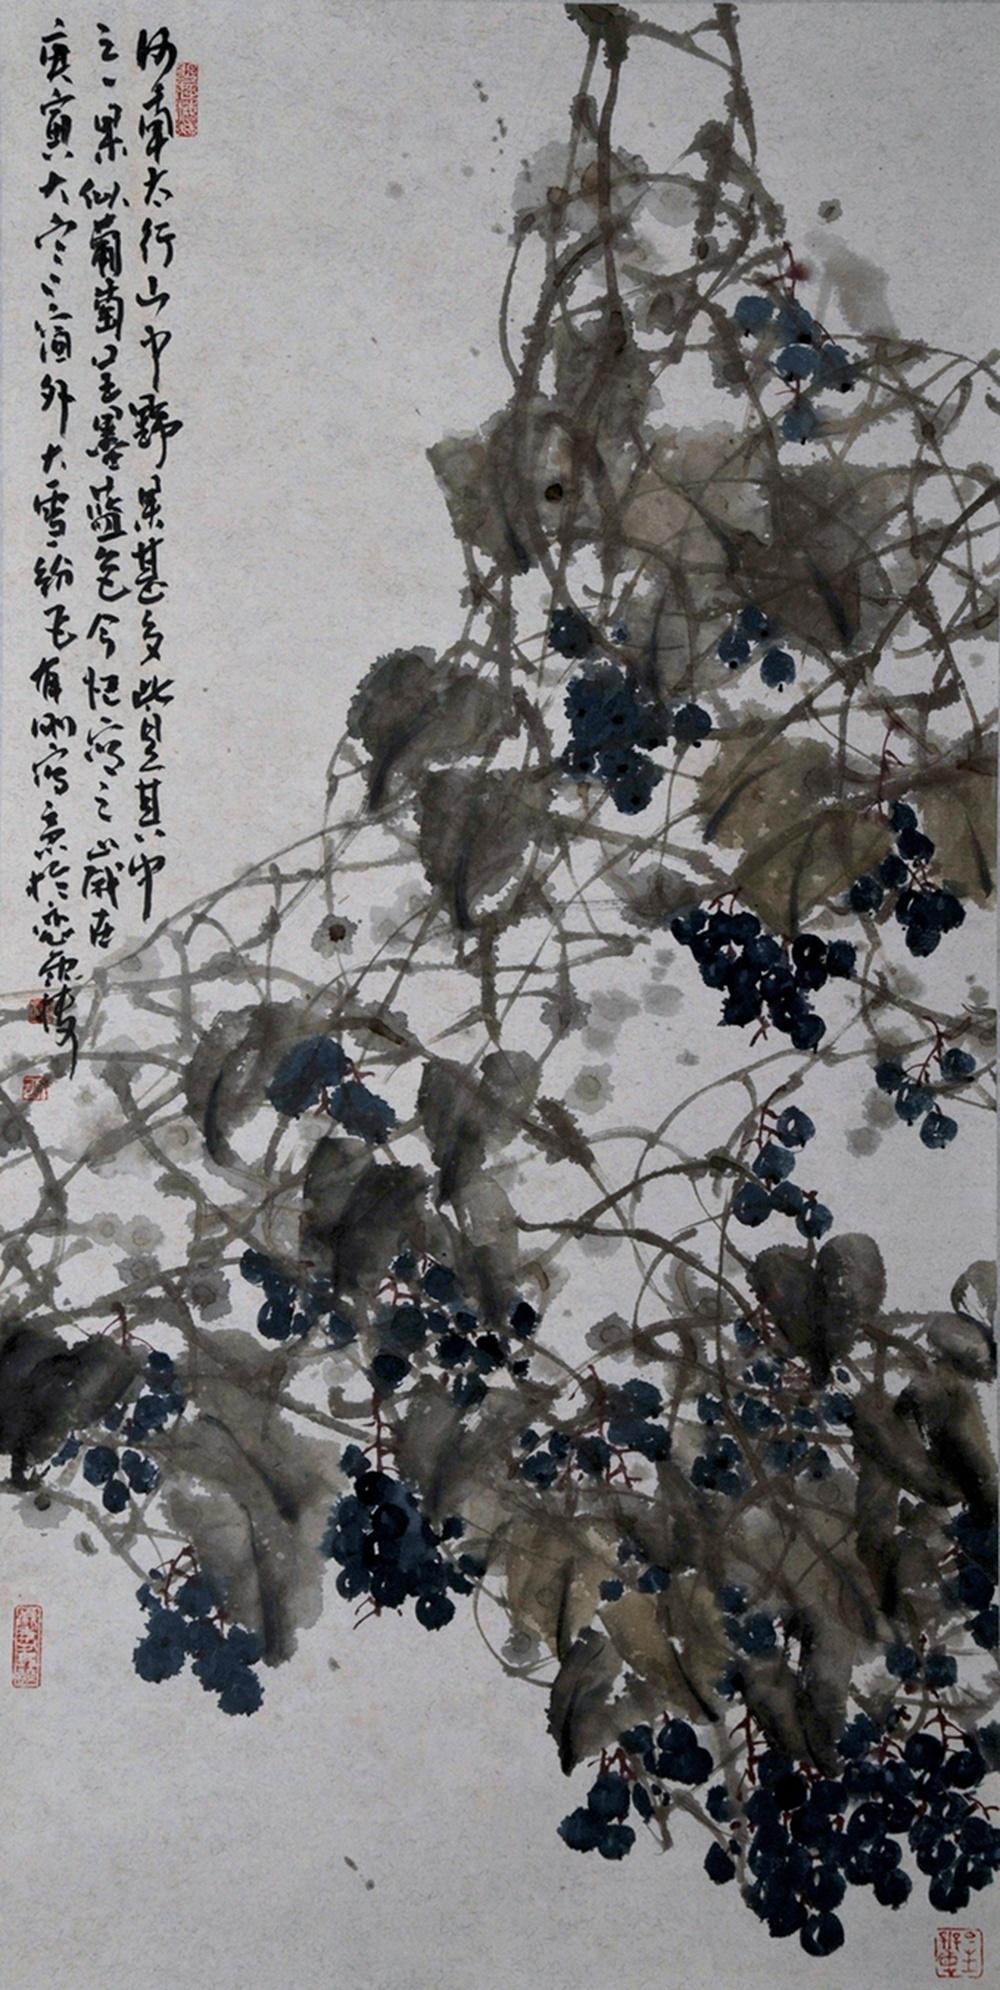 河南太行山中野果甚多此是其中
之一果似葡萄呈墨蓝色今忆写之岁在
庚寅大寒之窗外大雪纷飞有刚写意於